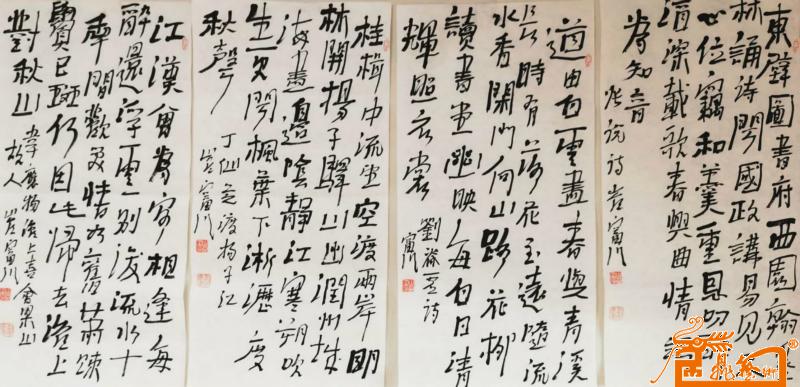 東壁圖書府西園翰墨
林誦詩聞國政講易見天
心位竊和羹重恩叨醉
酒深載歌春興曲情竭
為知音
張說詩 岩宙川
道由白雲盡春與青溪
長時有落花至遠隨流
水香閑門向山路深柳
讀書堂幽映每白日清
輝照衣裳
劉眘虛詩
桂楫中流望空波兩岸明
林開揚子驛山出潤州城
海盡邊陰靜江寒朔吹
生更聞楓葉下淅瀝度
秋聲
丁仙芝渡揚子江
江漢曾為客相逢每
醉還浮雲一別後流水十
年間歡笑情如舊蕭疏
鬢已斑何因北歸去淮上
對秋山
韋應物淮上喜會梁川
故人